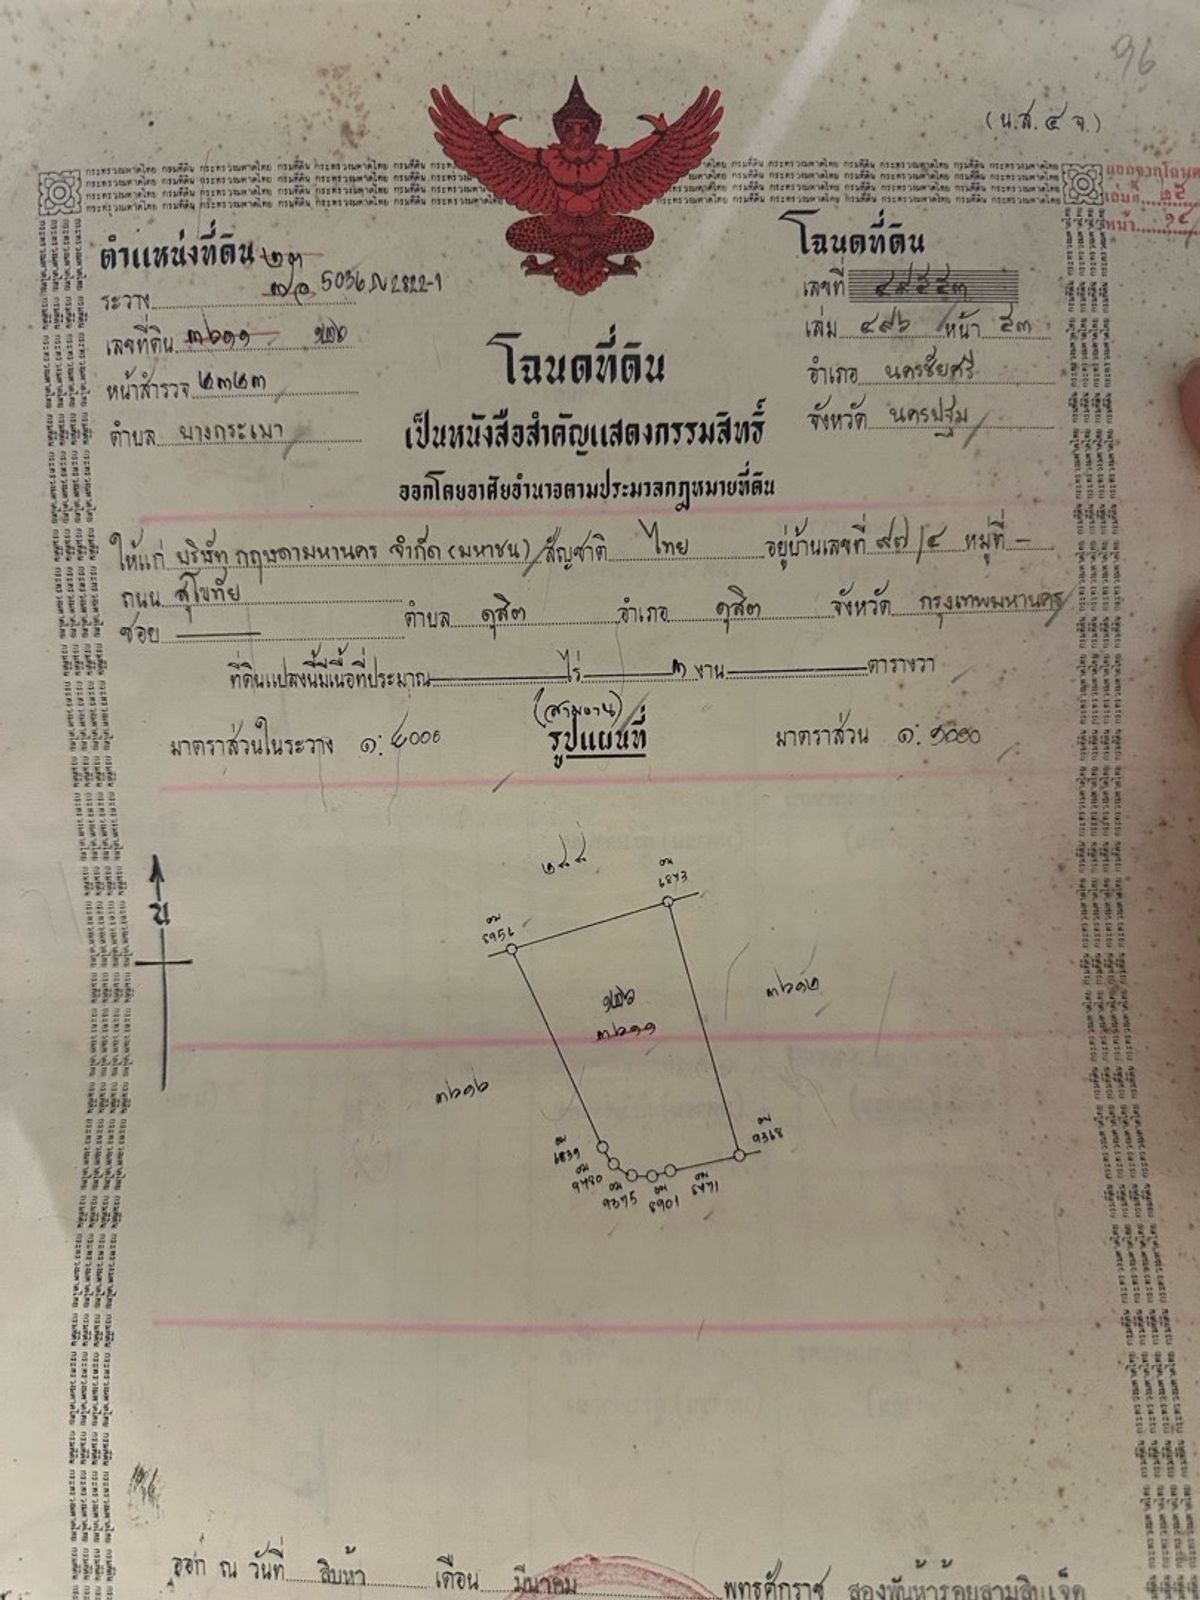 96
(น.ส.๔ จ.)
แยกจากโฉนด
เล่มที่ ๒๕
หน้า ๑๕
ตำแหน่งที่ดิน ๒๓
ระวาง 5036 IV 2822-1
เลขที่ดิน ๓๖๑๑ ๑๒๖
หน้าสำรวจ ๒๓๒๓
ตำบล บางกระเบา
โฉนดที่ดิน
เลขที่ ๔๙๕๕๓
เล่ม ๔๙๖ หน้า ๕๓
อำเภอ นครชัยศรี
จังหวัด นครปฐม
โฉนดที่ดิน
เป็นหนังสือสำคัญแสดงกรรมสิทธิ์
ออกโดยอาศัยอำนาจตามประมวลกฎหมายที่ดิน
ให้แก่ บริษัท กฤษดามหานคร จำกัด (มหาชน) สัญชาติ ไทย อยู่บ้านเลขที่ ๙๗/๔ หมู่ที่ -
ถนน สุโขทัย
ซอย ตำบล ดุสิต อำเภอ ดุสิต จังหวัด กรุงเทพมหานคร
ที่ดินแปลงนี้มีเนื้อที่ประมาณ ไร่ ๓ งาน ตารางวา
(สามงาน)
มาตราส่วนในระวาง ๑:๔๐๐๐ รูปแผนที่ มาตราส่วน ๑:๑๐๐๐
๒๙๙
6873
8956
น
๑๒๖
๓๖๑๑
๓๖๑๒
๓๖๑๖
9368
6839
9780
9375
8901
8871
ออก ณ วันที่ สิบห้า เดือน มีนาคม พุทธศักราช สองพันห้าร้อยสามสิบเจ็ด